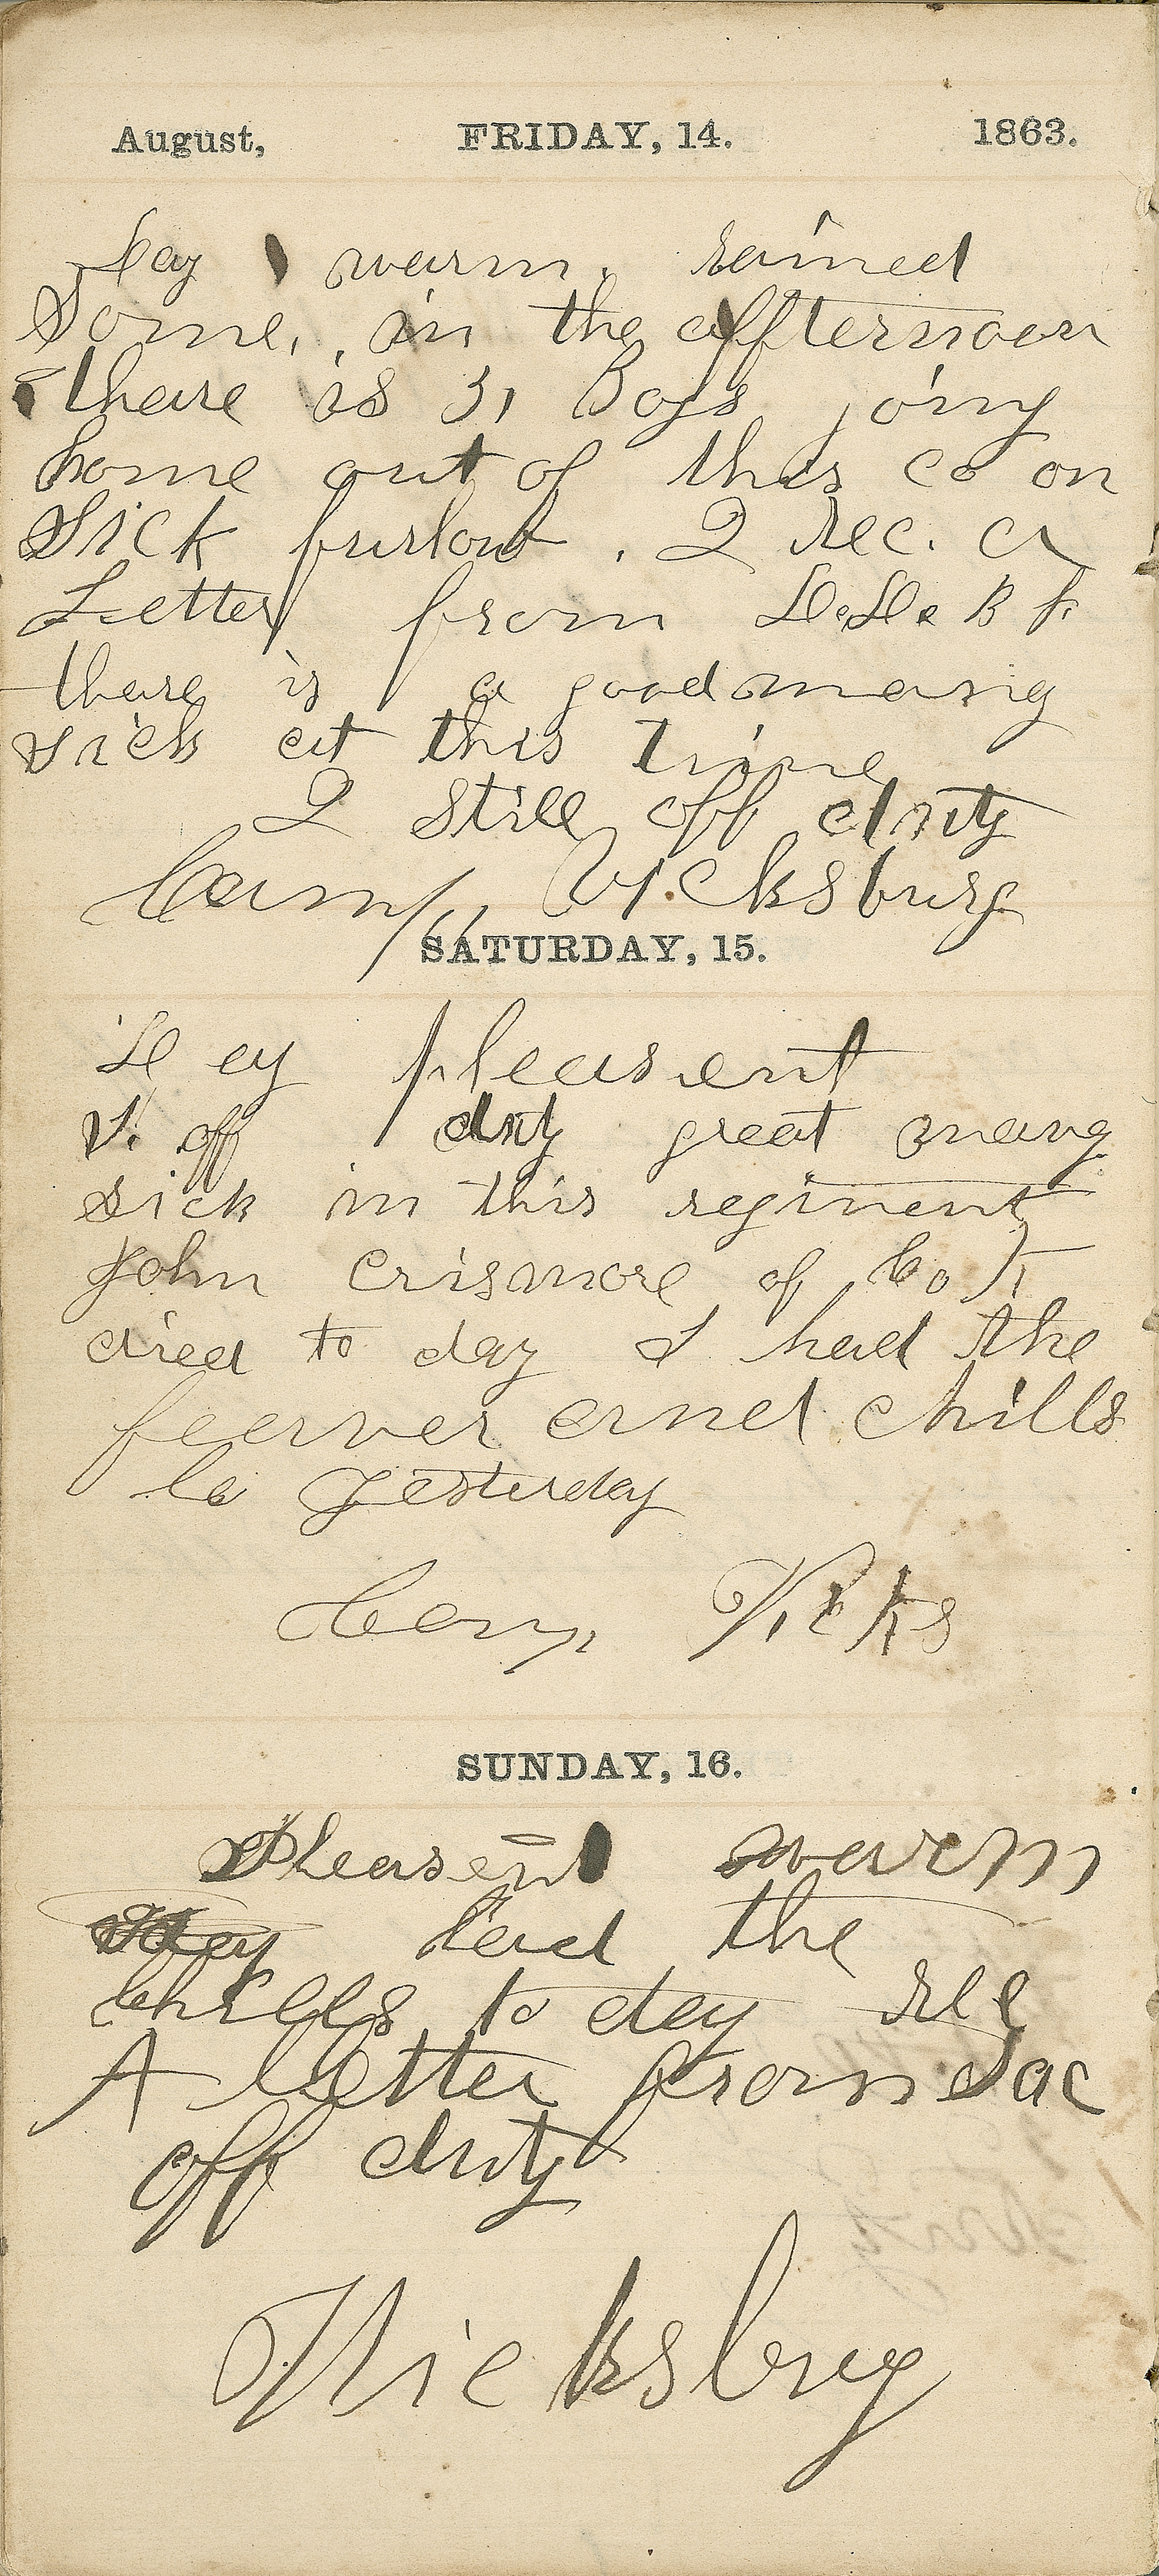 August, FRIDAY, 14. 1863.
Day warm. rained
Some, in the affternoon
thare is 3, Boys joing
home out of this co on
Sick furlow. I rec. a
Letter from
thare is a good many
sick at this Time
I still off duty
Camp, Vicksburg
SATURDAY, 15.
Day pleasent
off duty great many
sick in this regiment
John Crismore of Co K
died to day I had the
feerver and chills
yesterday
Camp Vicks
SUNDAY, 16.
Pleasent warm
had the
Chills to day rec
A letter from Sac
off duty
Vicksbug